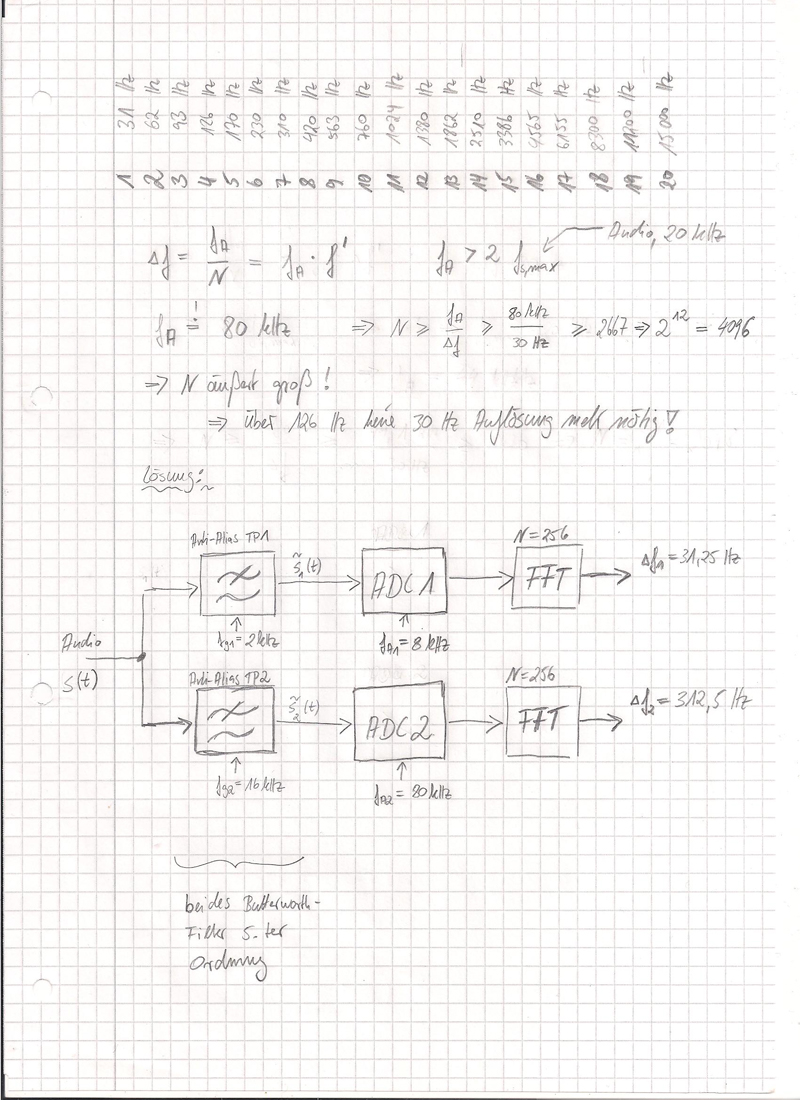 1 31 Hz
2 62 Hz
3 93 Hz
4 126 Hz
5 170 Hz
6 230 Hz
7 310 Hz
8 420 Hz
9 563 Hz
10 760 Hz
11 1024 Hz
12 1380 Hz
13 1862 Hz
14 2510 Hz
15 3386 Hz
16 4565 Hz
17 6155 Hz
18 8300 Hz
19 11200 Hz
20 15000 Hz
Δf = f_A / N = f_A · f' f_A > 2 f_s,max Audio, 20 kHz
f_A =! 80 kHz ⇒ N ≥ f_A / Δf ≥ 80 kHz / 30 Hz ≥ 2667 ⇒ 2^12 = 4096
⇒ N äußert groß!
⇒ über 126 Hz keine 30 Hz Auflösung mehr nötig!
Lösung:
Anti-Alias TP1
s̃_1(t)
ADC1
N=256
FFT
Δf_1 = 31,25 Hz
f_g1 = 2 kHz
f_A1 = 8 kHz
Audio
s(t)
Anti-Alias TP2
s̃_2(t)
ADC2
N=256
FFT
Δf_2 = 312,5 Hz
f_g2 = 16 kHz
f_A2 = 80 kHz
beides Butterworth-
Filter 5-ter
Ordnung